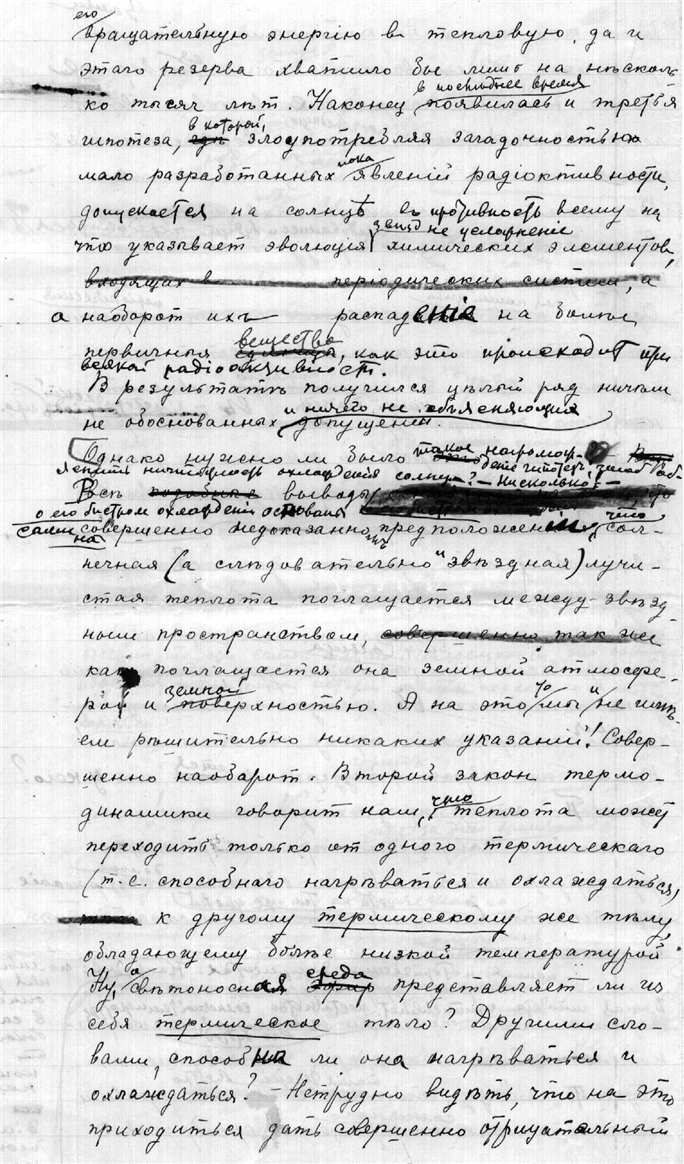 его
вращательную энергію въ тепловую, да и
этаго резерва хватило бы лишь на нѣсколь
въ послѣднее время
ко тысяч лѣт. Наконец появилась и третья
в которой,
гипотеза, злоупотребляя загадочностью
пока
мало разработанных явленій радіоктивности,
допускается на солнцѣ въ противность всему на
звѣзд не усложненіе
что указывает эволюція химических элементов,
входящих в періодических систем, а
а наоборот ихъ распаденіе на болѣе
вещества
первичныя единицы, как это происходит при
всякой радіоактивност.
В результатѣ получился цѣлый ряд ничѣм
и ничего не объясняющих
не обоснованных допущеній.
Однако нужно ли было такое нагромож-
деніе гипотез, чтоб об-
яснить ничтожность охлажденія солнца? — Нисколько! —
Вѣсь подобные выводы
о его быстром охлажденіи основаны
сам совершенно недоказанно предположеніи, что сол-
на
нечная (а слѣдовательно и звѣздная) лучи-
стая теплота поглощается между-звѣзд-
ным пространством, совершенно так же
как поглощается она земной атмосфе-
земной
рой и поверхностью. А на это то мы и не имѣ-
ем рѣшительно никаких указаній! Совер-
шенно наоборот. Второй закон термо-
динамики говорит нам, что теплота может
переходить только от одного термическаго
(т.е. способнаго нагрѣваться и охлаждаться,
к другому термическому же тѣлу,
обладающему болѣе низкой температурой
среда
Ну, а свѣтоносная эфир представляет ли из
себя термическое тѣло? Другими сло-
вами, способна ли она нагрѣваться и
охлаждаться? — Нетрудно видѣть, что на это
приходиться дать совершенно отрицательный